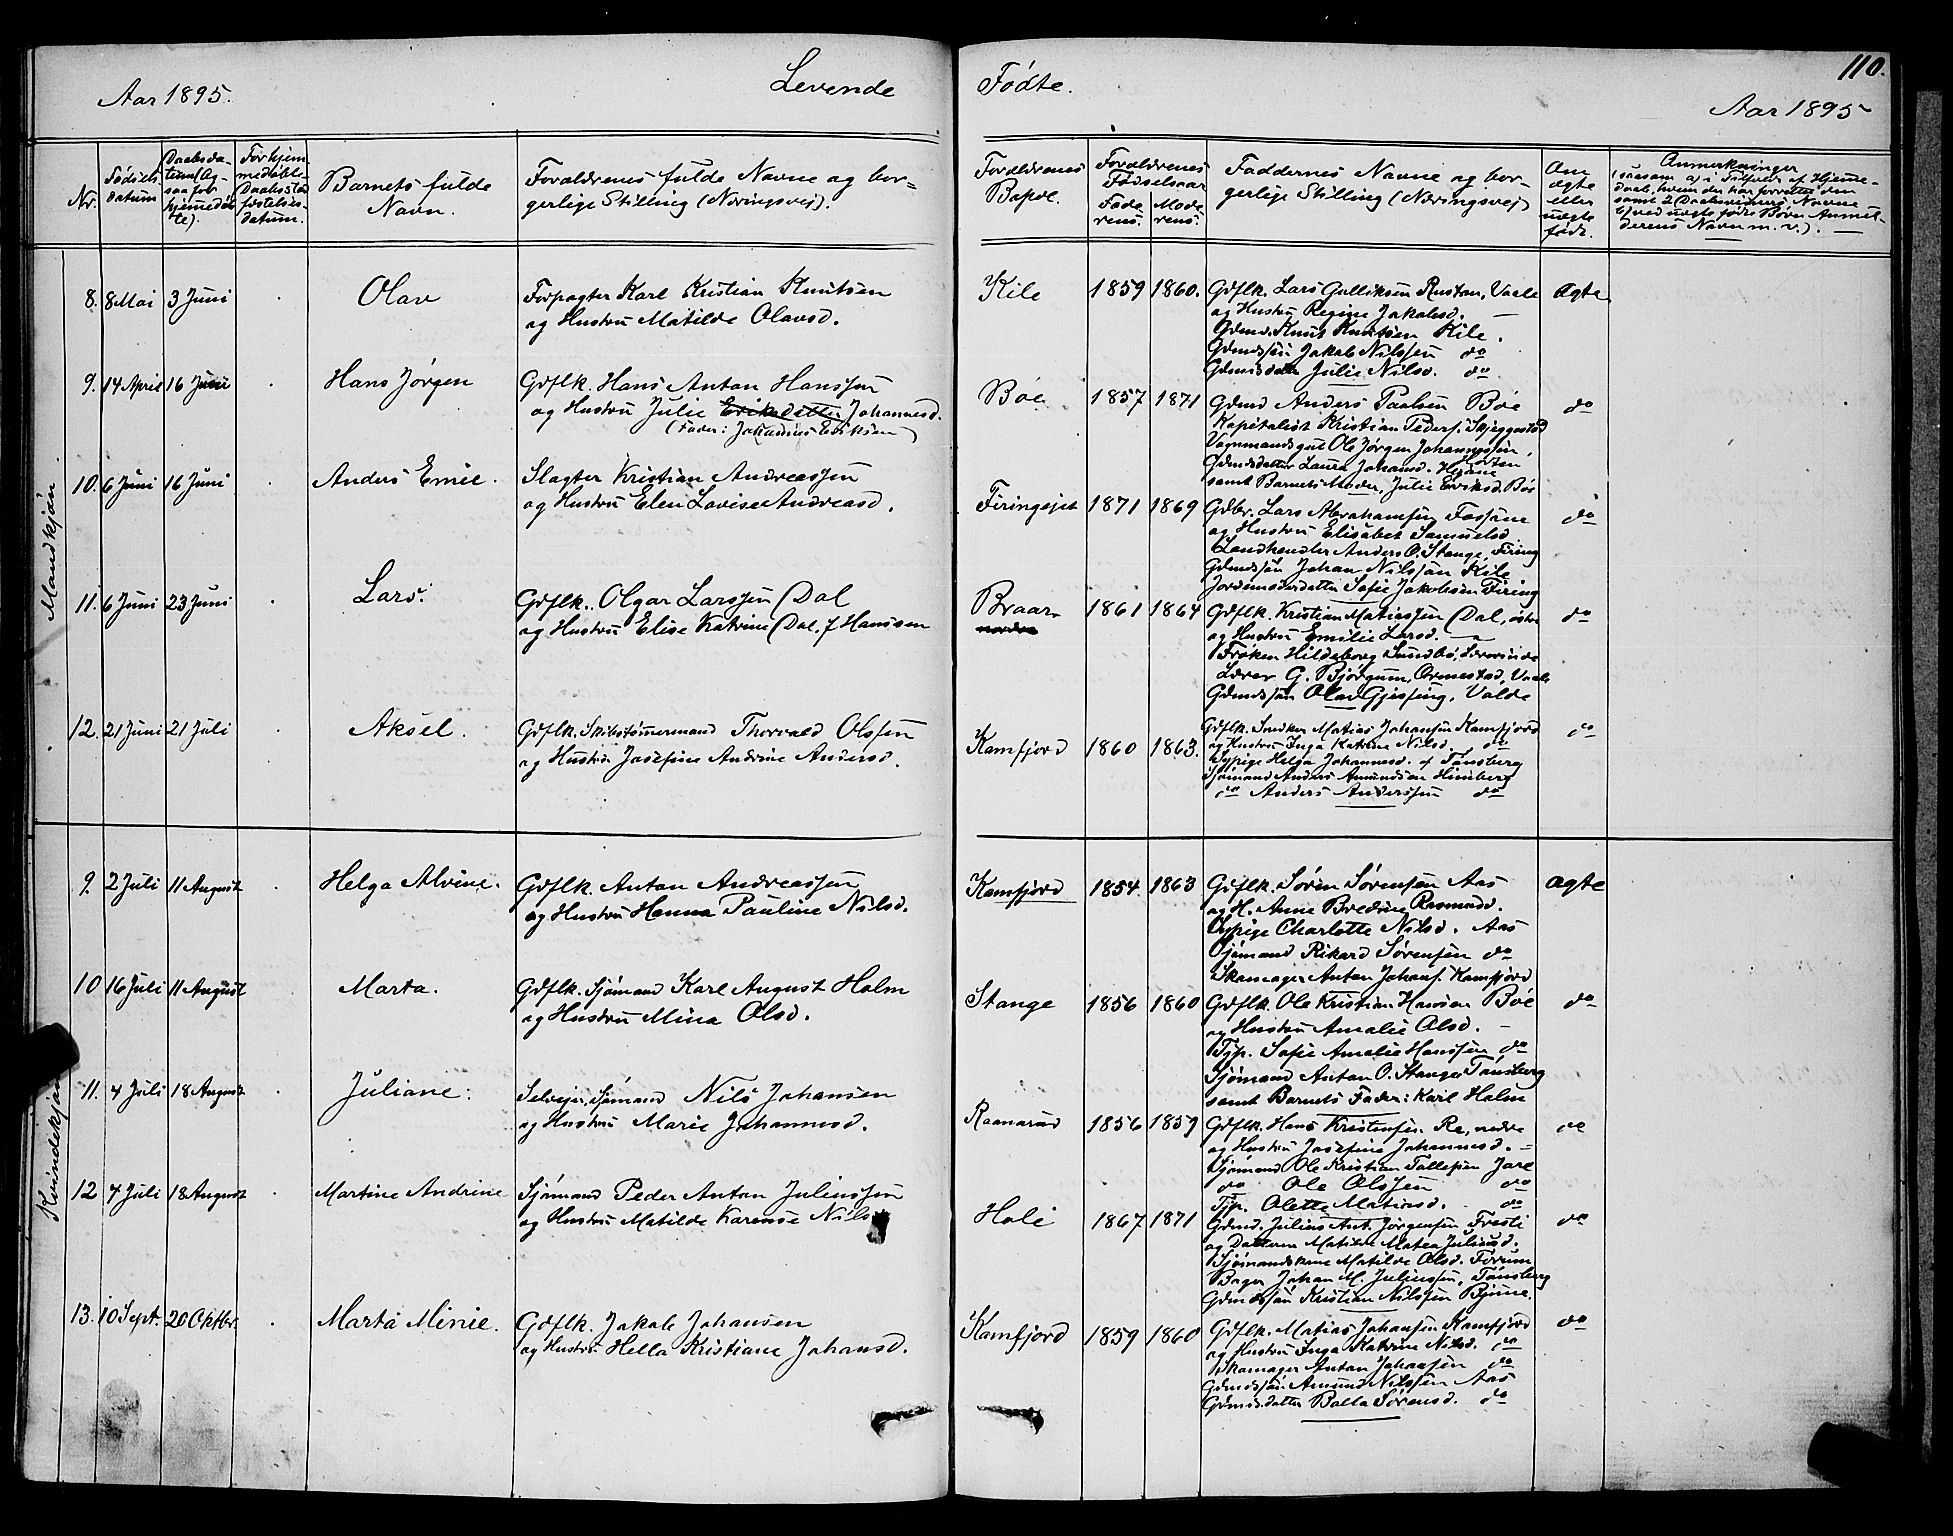 110.
Aar 1895.
Levende
Fødte.
Aar 1895
Nr.
Fødsels-
datum
Daabsda-
tum (og-
saa for
hjemmedøb-
te).
For hjem-
medøbte
Daabsstad-
fæstelses-
datum.
Barnets fulde
Navn.
Forældrenes fulde Navne og bor-
gerlige Stilling (Næringsvej).
Forældrenes
Bopæl.
Forældrenes
Fødselsaar
Fade-
rens.
Mode-
rens.
Faddernes Navne og bor-
gerlige Stilling (Næringsvej)
Om
ægte
eller
uægte
født.
Anmerkninger
(saasom a) i Tilfælde af Hjemme-
daab, hvem der har forrettet den
samt 2 Daabsvidners Navne
b) ved uægte fødte Børn Anmel-
derens Navn m. v.).
Mandkjøn
8. 8 Mai 3 Juni Olav Forpagter Karl Kristian Knutsen
og Hustru Matilde Olavsd.
Kile 1859 1860. Gdflk. Lars Gulliksen Rustan, Vaale ægte
og Hustru Regine Jakobsd. —
Gdmd. Knut Knutsen Kile.
Gdmdssøn Jakob Nilssen do
Gdmdsdatt. Julie Nilsd. do
9. 14 April 16 Juni Hans Jørgen Gdflk. Hans Anton Hanssen
og Hustru Julie Eriksdatter Johannesd.
(Fader: Johannes Eriksen)
Bøe 1857 1871 Gdmd Anders Paulsen Bøe do
Kapitalist Kristian Peders. Skjeggestad
Vognmandsgut Ole Jørgen Johannessen,
Horten
Gdmdsdatter Laura Johansd.
samt Barnets Moder, Julie Eriksd. Bøe
10. 6 Juni 16 Juni Anders Emil. Slagter Kristian Andreassen
og Hustru Elen Lovise Andreasd.
Firingejet 1871 1869 Gdbr. Lars Abrahamsen Fossane do
og Hustru Elisabet Samuelsd
Landhandler Anders O. Stange, Firing
Gdmdssøn Johan Nilssøn Kile
Jordemoderdatter Sofie Jakobsen Firing
11. 6 Juni 23 Juni Lars. Gdflk. Olgar Larssen Dal
og Hustru Elise Katrine Dal, f Hanssen
Braar 1861 1864 Gdflk. Kristian Matiassen Dal, østre do
nordre
og Hustru Emilie Larsd. —
Frøken Hildeborg Sundbø, Lærerinde
Lærer G. Bjørgum, Ormestad, Vaale
Gdmdssøn Olav Gjessing, Valde
12. 21 Juni 21 Juli Aksel. Gdflk. Skibstømmermand Thorvald Olsen
og Hustru Josefine Andrine Andersd.
Kamfjord 1860 1863. Gdflk. Snedker Matias Johansen Kamfjord do
og Hustru Inga Katrine Nilsd. do
Sypige Helga Johannesd. af Tønsberg
Sjømand Anders Amundsen Himberg
do Anders Anderssen do
Kvindekjøn
9. 2 Juli 11 August Helga Alvine. Gdflk. Anton Andreassen
og Hustru Hanna Pauline Nilsd.
Kamfjord 1854. 1863 Gdflk. Søren Sørensen Aas ægte
og H. Anne Bredine Rasmusd.
Sypige Charlotte Nilsd. Aas
Sjømand Rikard Sørensen do
Skomager Anton Johans. Kamfjord
10 16 Juli 11 August Marta. Gdflk. Sjømand Karl August Holm
og Hustru Mina Olsd.
Stange 1856 1860 Gdflk. Ole Kristian Hansen Bøe do
og Hustru Amalie Olsd. —
Tjp. Sofie Amalie Hanssen do
Sjømand Anton O. Stange, Tønsberg
samt Barnets Fader: Karl Holm
11. 4 Juli 18 August Juliane. Selvejer, Sjømand Nils Johansen
og Hustru Marie Johannesd.
Ramnarud 1856 1859 Gdflk. Hans Kristensen Re, nedre do
og Hustru Josefine Johannesd. —
Sjømand Ole Kristian Tollefsen Jarl
do Ole Olssen do
Tjp. Olette Matiasd. do
12 4 Juli 18 August Martine Andrine Sjømand Peder Anton Juliussen
og Hustru Matilde Karense Nils
Holi 1867 1871 Gdmd. Julius Ant. Jørgensen, Fresti do
og Datteren Matilde Matea Juliusd.
Sjømandskone Matilde Olsd. Førum
Bager Johan M. Juliussen, Tønsberg
Gdmdssøn Kristian Nilssen Bjune.
13. 10 Sept. 20 Oktbr. Marta Minie. Gdflk. Jakob Johansen
og Hustru Hella Kristiane Johansd.
Kamfjord 1859 1860 Gdflk. Matias Johansen Kamfjord do
og Hustru Inga Katrine Nilsd. do
Skomager Anton Johansen do
Gdmdssøn Amund Nilssen Aas
Gdmdsdatter Bolla Sørensd. do